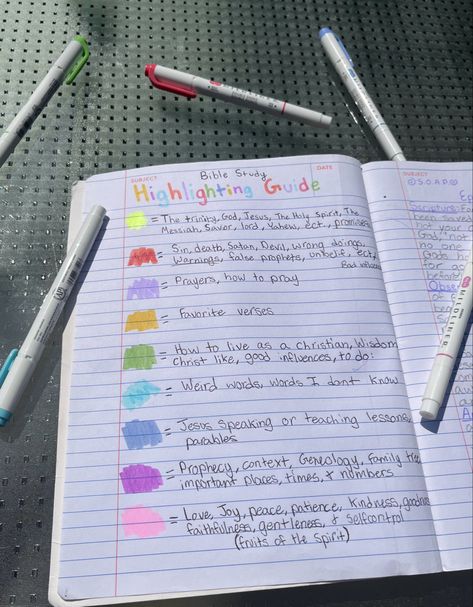 SUBJECT
Bible Study
DATE
Highlighting Guide
= The trinity, God, Jesus, The Holy Spirit, The
Messiah, Savor, lord, Yahew, ect., promises
= Sin, death, Satan, Devil, wrong doings,
Warnings, false prophets, unbelif, ect,
Bad influences
= Prayers, how to pray
= Favorite verses
= How to live as a christian, Wisdom
Christ like, good influences, to do:
= Weird words, words I dont know
= Jesus speaking or teaching lessons,
parables
= Prophecy, context, Geneology, Family tree
important places, times, & numbers
= Love, Joy, peace, patience, kindness, goodness
faithfulness, gentleness, & Selfcontrol
(fruits of the Spirit)
SUBJECT
SOAP
Scripture: For
been saved
not your
God, not
no one
Gods
for
before
Obse
MILDLINER